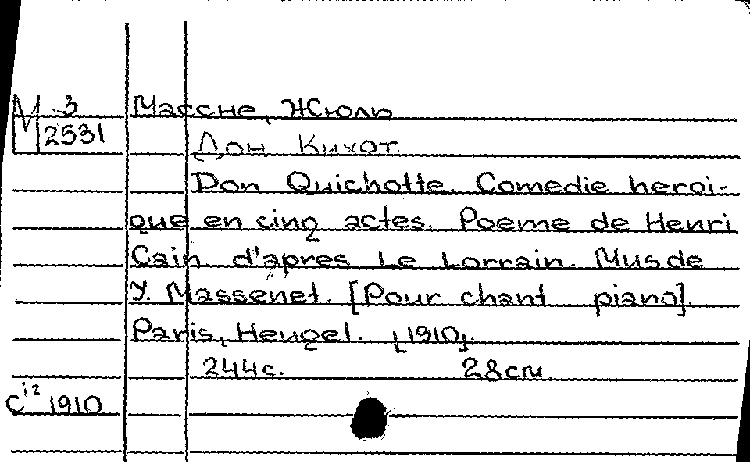 М 3
2531
Массне, Жюль
Дон Кихот.
Don Quichotte. Comedie heroi-
que en cinq actes. Poeme de Henri
Cain d'apres Le Lorrain. Mus. de
J. Massenet. [Pour chant piano].
Paris, Heugel. [1910].
244 с. 28 см.
C i2 1910